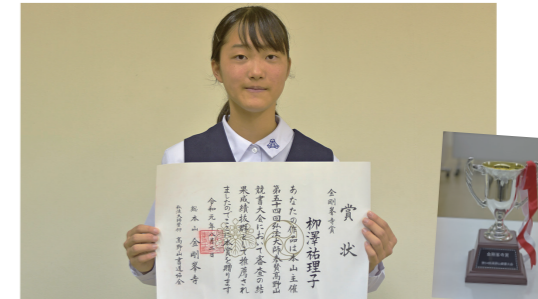 賞状
金剛峯寺賞
柳澤祐理子
あなたの作品は本山主催
第五十四回弘法大師奉賛高野山
競書大会において審査の結
果成績抜群として推薦され
ましたのでここに本賞を贈ります
令和元年八月
総本山金剛峯寺
高野山書道協会